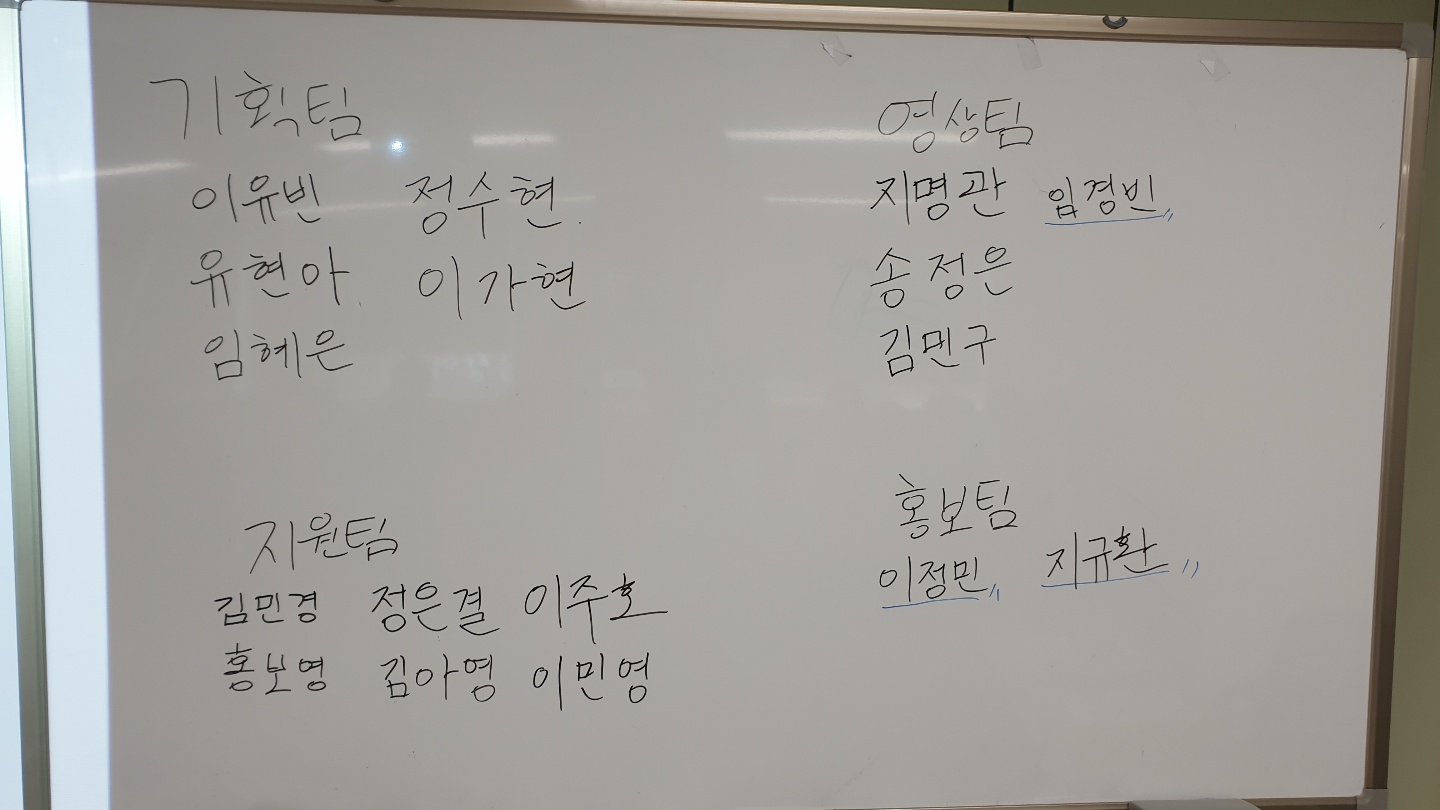 기획팀
이유빈 정수현.
유현아. 이가현
임혜은
영상팀
지명관 임경빈
송정은
김민구
지원팀
김민경 정은결 이주호
홍보영 김아영 이민영
홍보팀
이정민 지규환